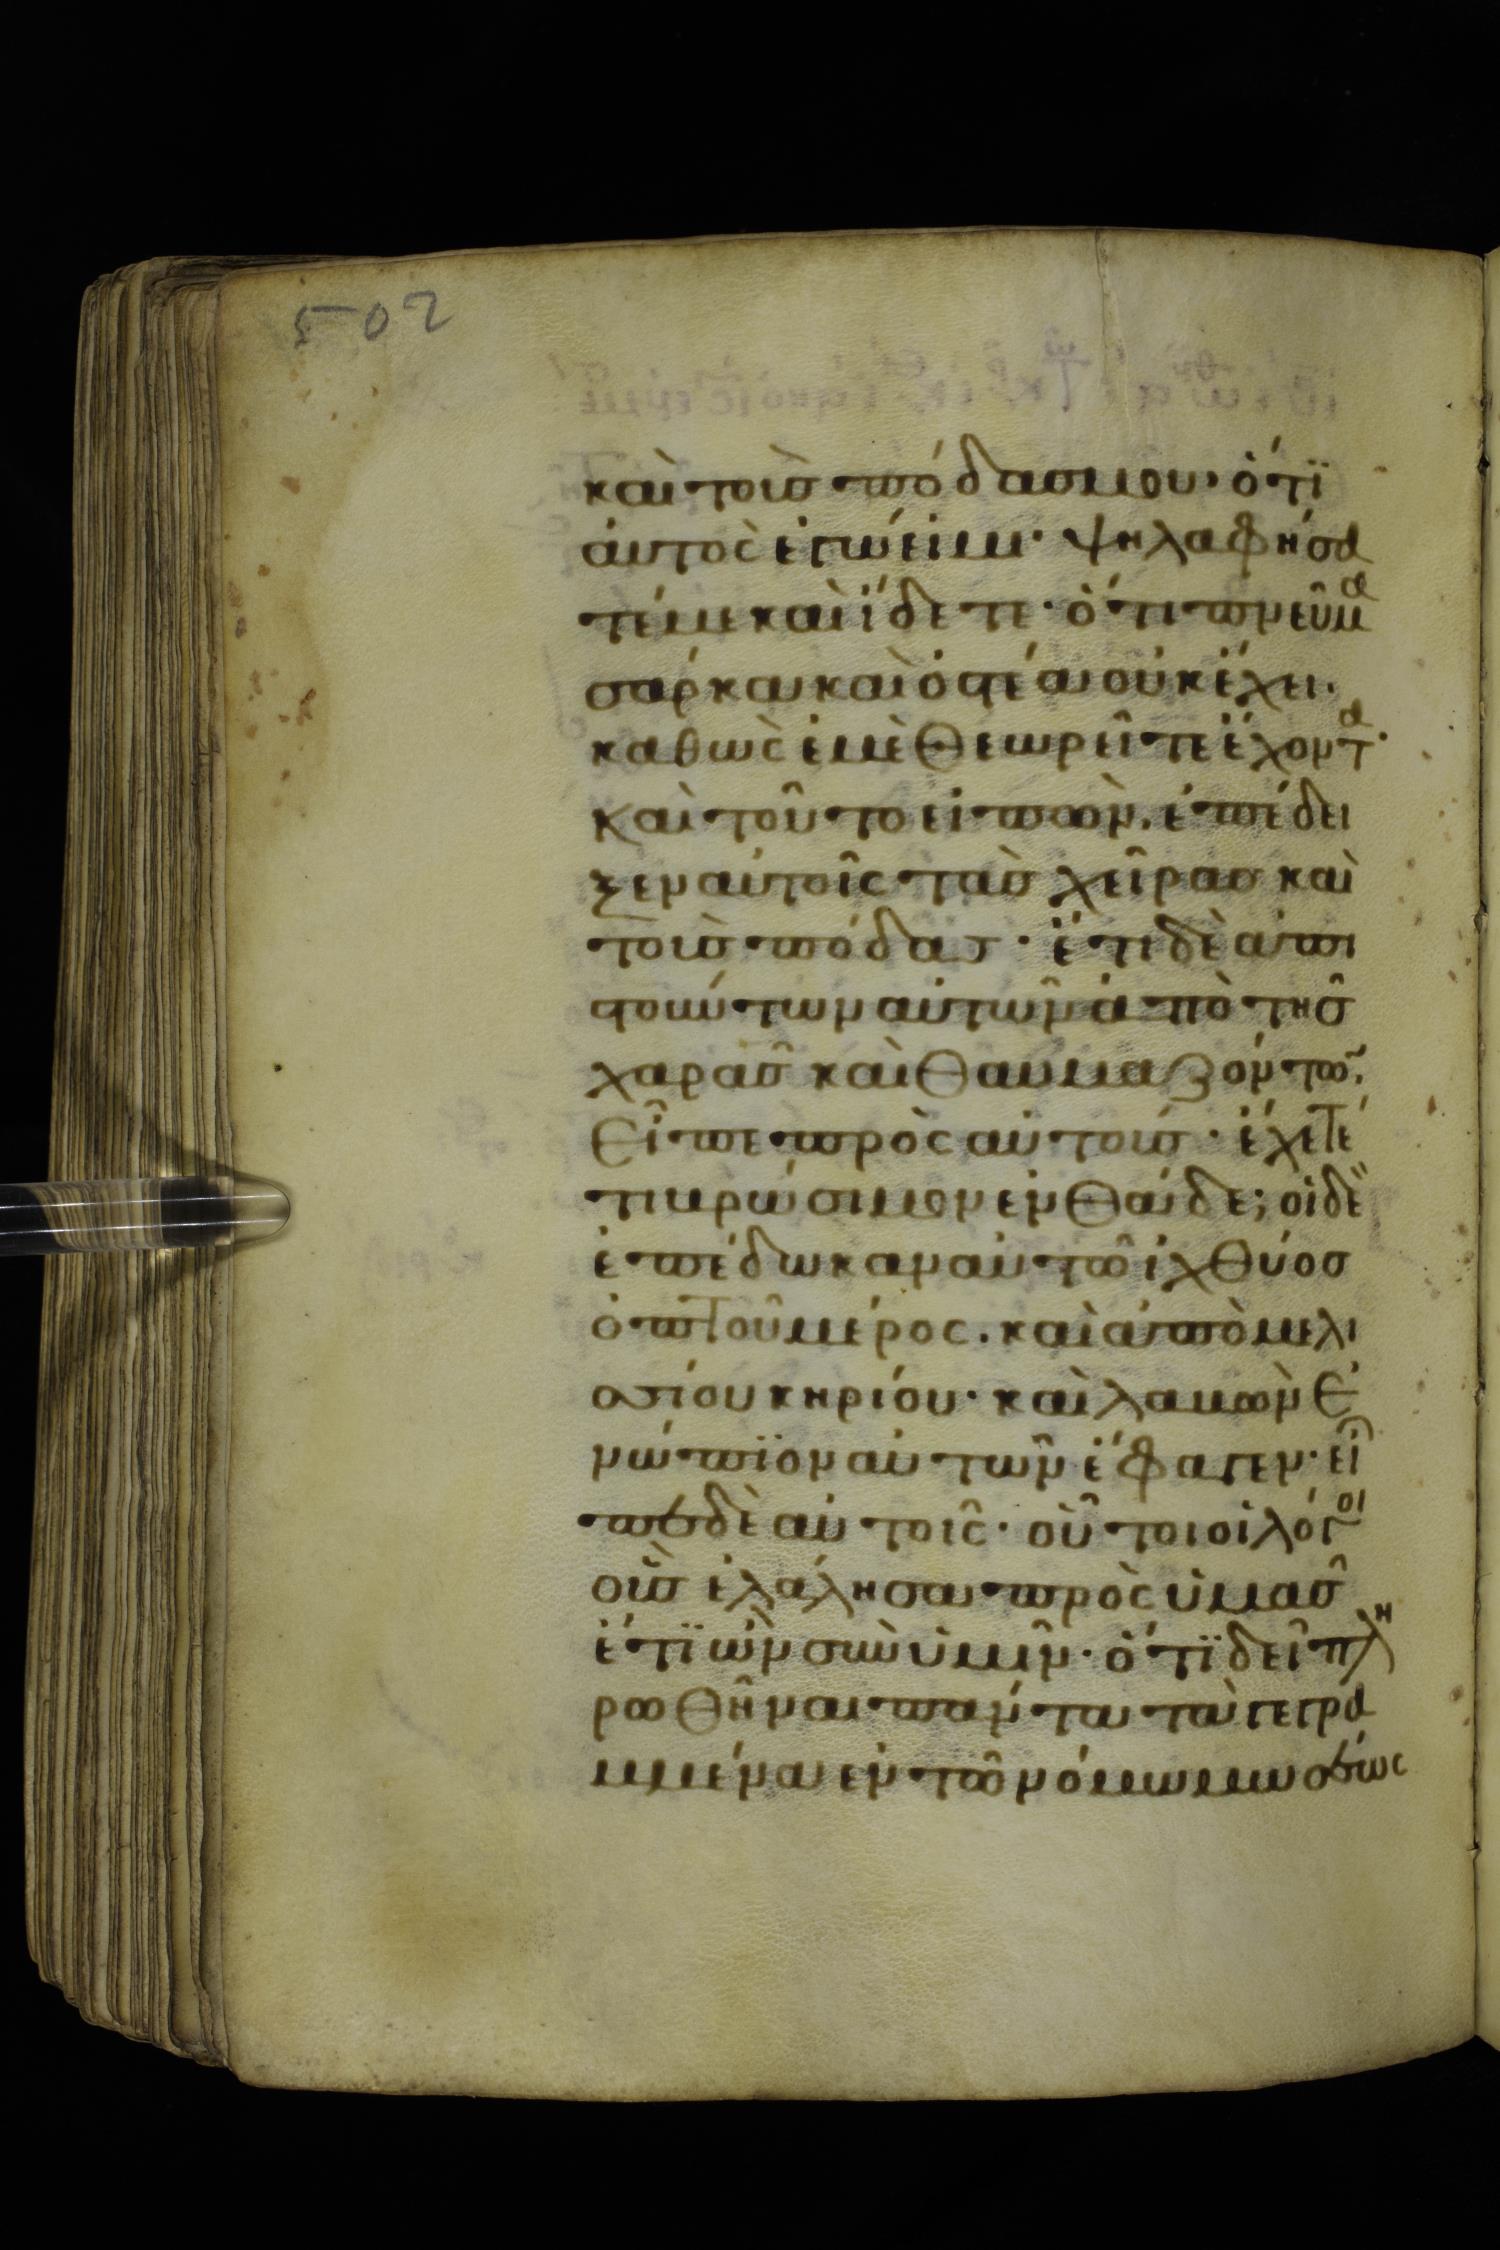 502
καὶ τοὺσ πόδασ μου· ὅτϊ
ἀυτὸς ἐγώ ἐιμι· ψηλαφήσα
τέ με καὶ ἴδετε· ὅτι πνεῦμα
σάρκα καὶ ὀστέα οὐκ ἔχει·
καθὼς ἐμὲ θεωρεῖτε ἔχοντα·
καὶ τοῦτο εἰπὼν. ἐπέδει
ξεν αὐτοῖς τὰσ χεῖρασ καὶ
τοὺσ πόδας· ἔτι δὲ ἀπι
στούντων αὐτῶν ἀπὸ τησ͂
χαρᾶσ καὶ θαυμαζόντων,
Εἶπε πρὸς αὐτούσ· ἔχετέ
τι βρώσιμον ἐνθάδε; οἱ δὲ
ἐπέδωκαν αὐτῶ ἰχθύοσ
ὀπτοῦ μέρος. καὶ ἀπὸ μελι
σσίου κηρίου· καὶ λαβὼν ἐ
νώπϊον αὐτῶν ἔφαγεν· εἶ
πε δὲ αὐτοῖς· οὗτοι οἱ λόγοι
οὓσ ἐλάλησα πρὸς ὑμασ͂
ἔτϊ ὢν σὺν ὑμῖν· ὅτϊ δεῖ πλη
ρωθῆναι πάντα τὰ γεγρα
μμένα ἐν τῶ νόμω μωσέως